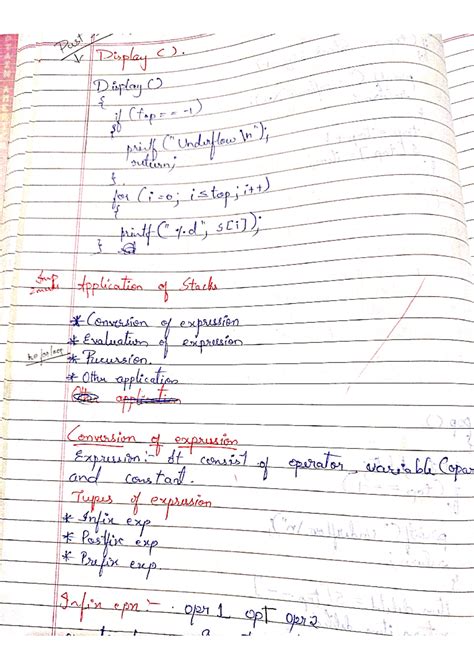 Part
Display ( ).
Display ( )
{
if (top == -1)
{
printf ("Underflow \n");
return;
}
for (i=0; i≤top; i++)
{
printf ("%d", s[i]);
}
Application of Stacks
* Conversion of expression
* Evaluation of expression
* Recursion.
* Other application
Other application
Conversion of expression
Expression:- It consist of operator, variable (opar
and constant.
Types of expression
* Infix exp
* Postfix exp
* Prefix exp
Infix epn:- opr1 opt opr2